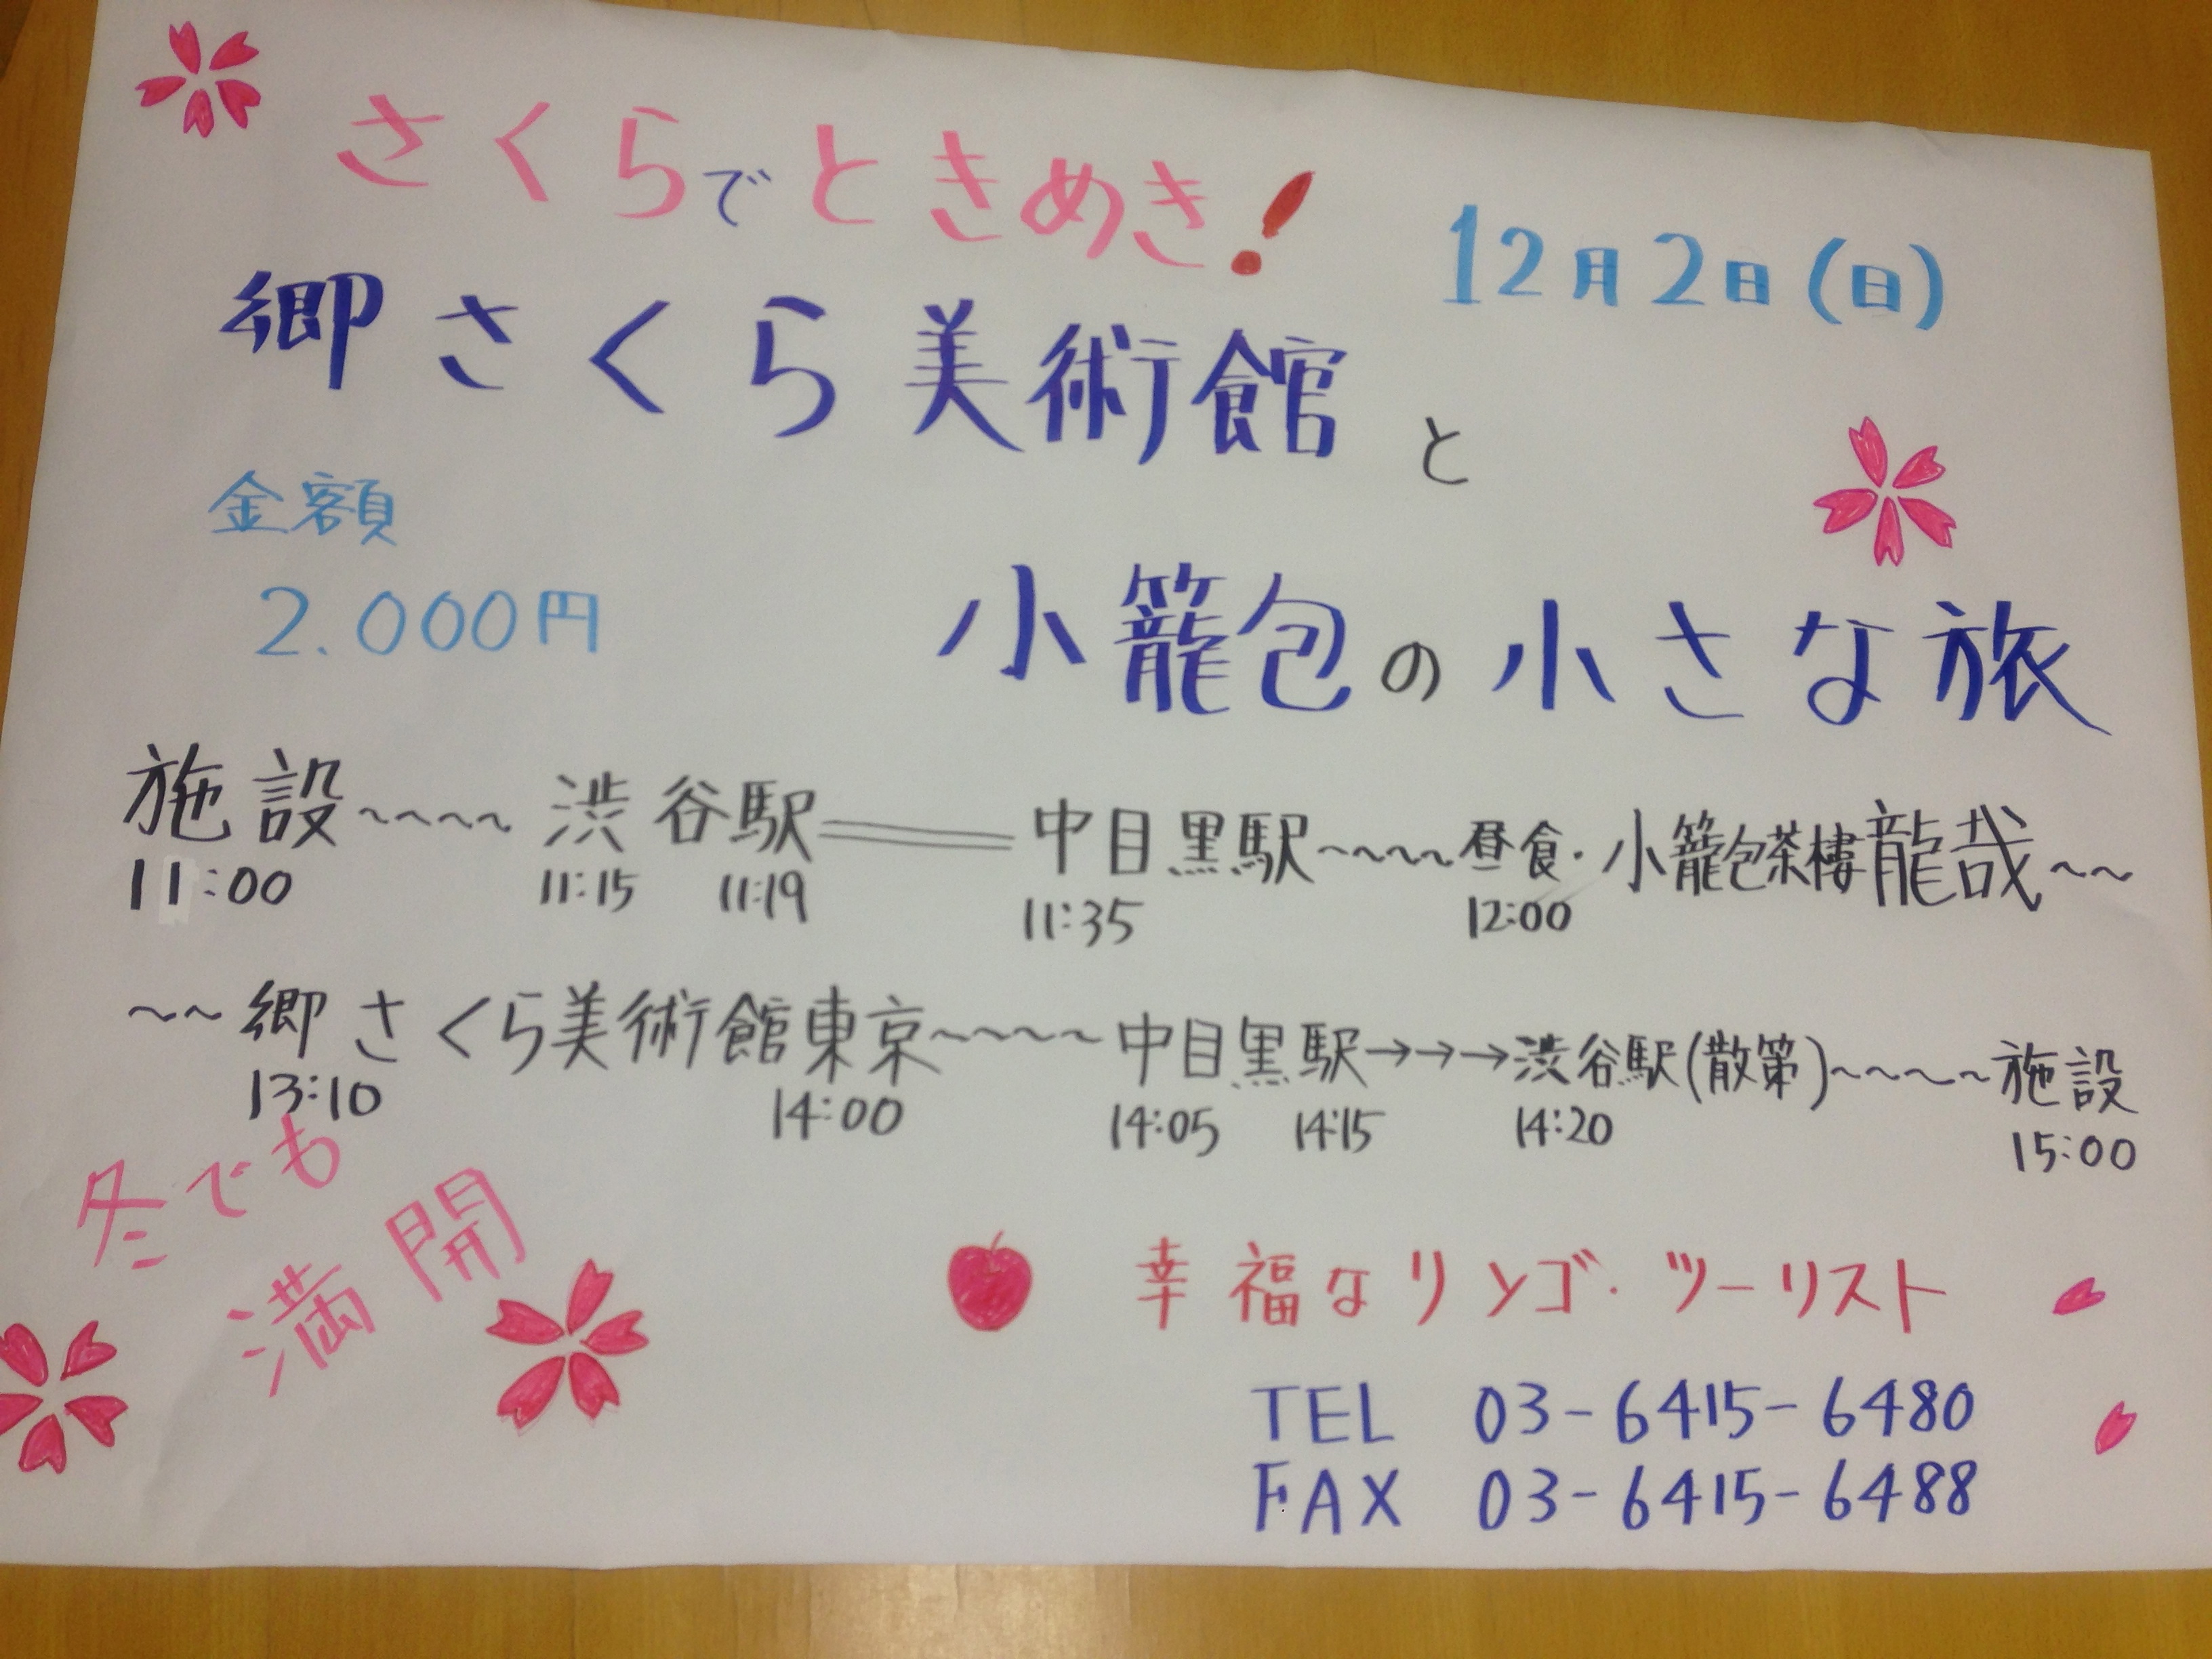 さくらでときめき!
12月2日(日)
郷さくら美術館と
金額
2.000円
小籠包の小さな旅
施設~~~~渋谷駅====中目黒駅~~~~昼食・小籠包茶樓龍哉~~
11:00 11:15 11:19 11:35 12:00
~~郷さくら美術館東京~~~~中目黒駅→→→渋谷駅(散策)~~~~施設
13:10 14:00 14:05 14:15 14:20 15:00
冬でも
満開
幸福なリンゴ・ツーリスト
TEL 03-6415-6480
FAX 03-6415-6488